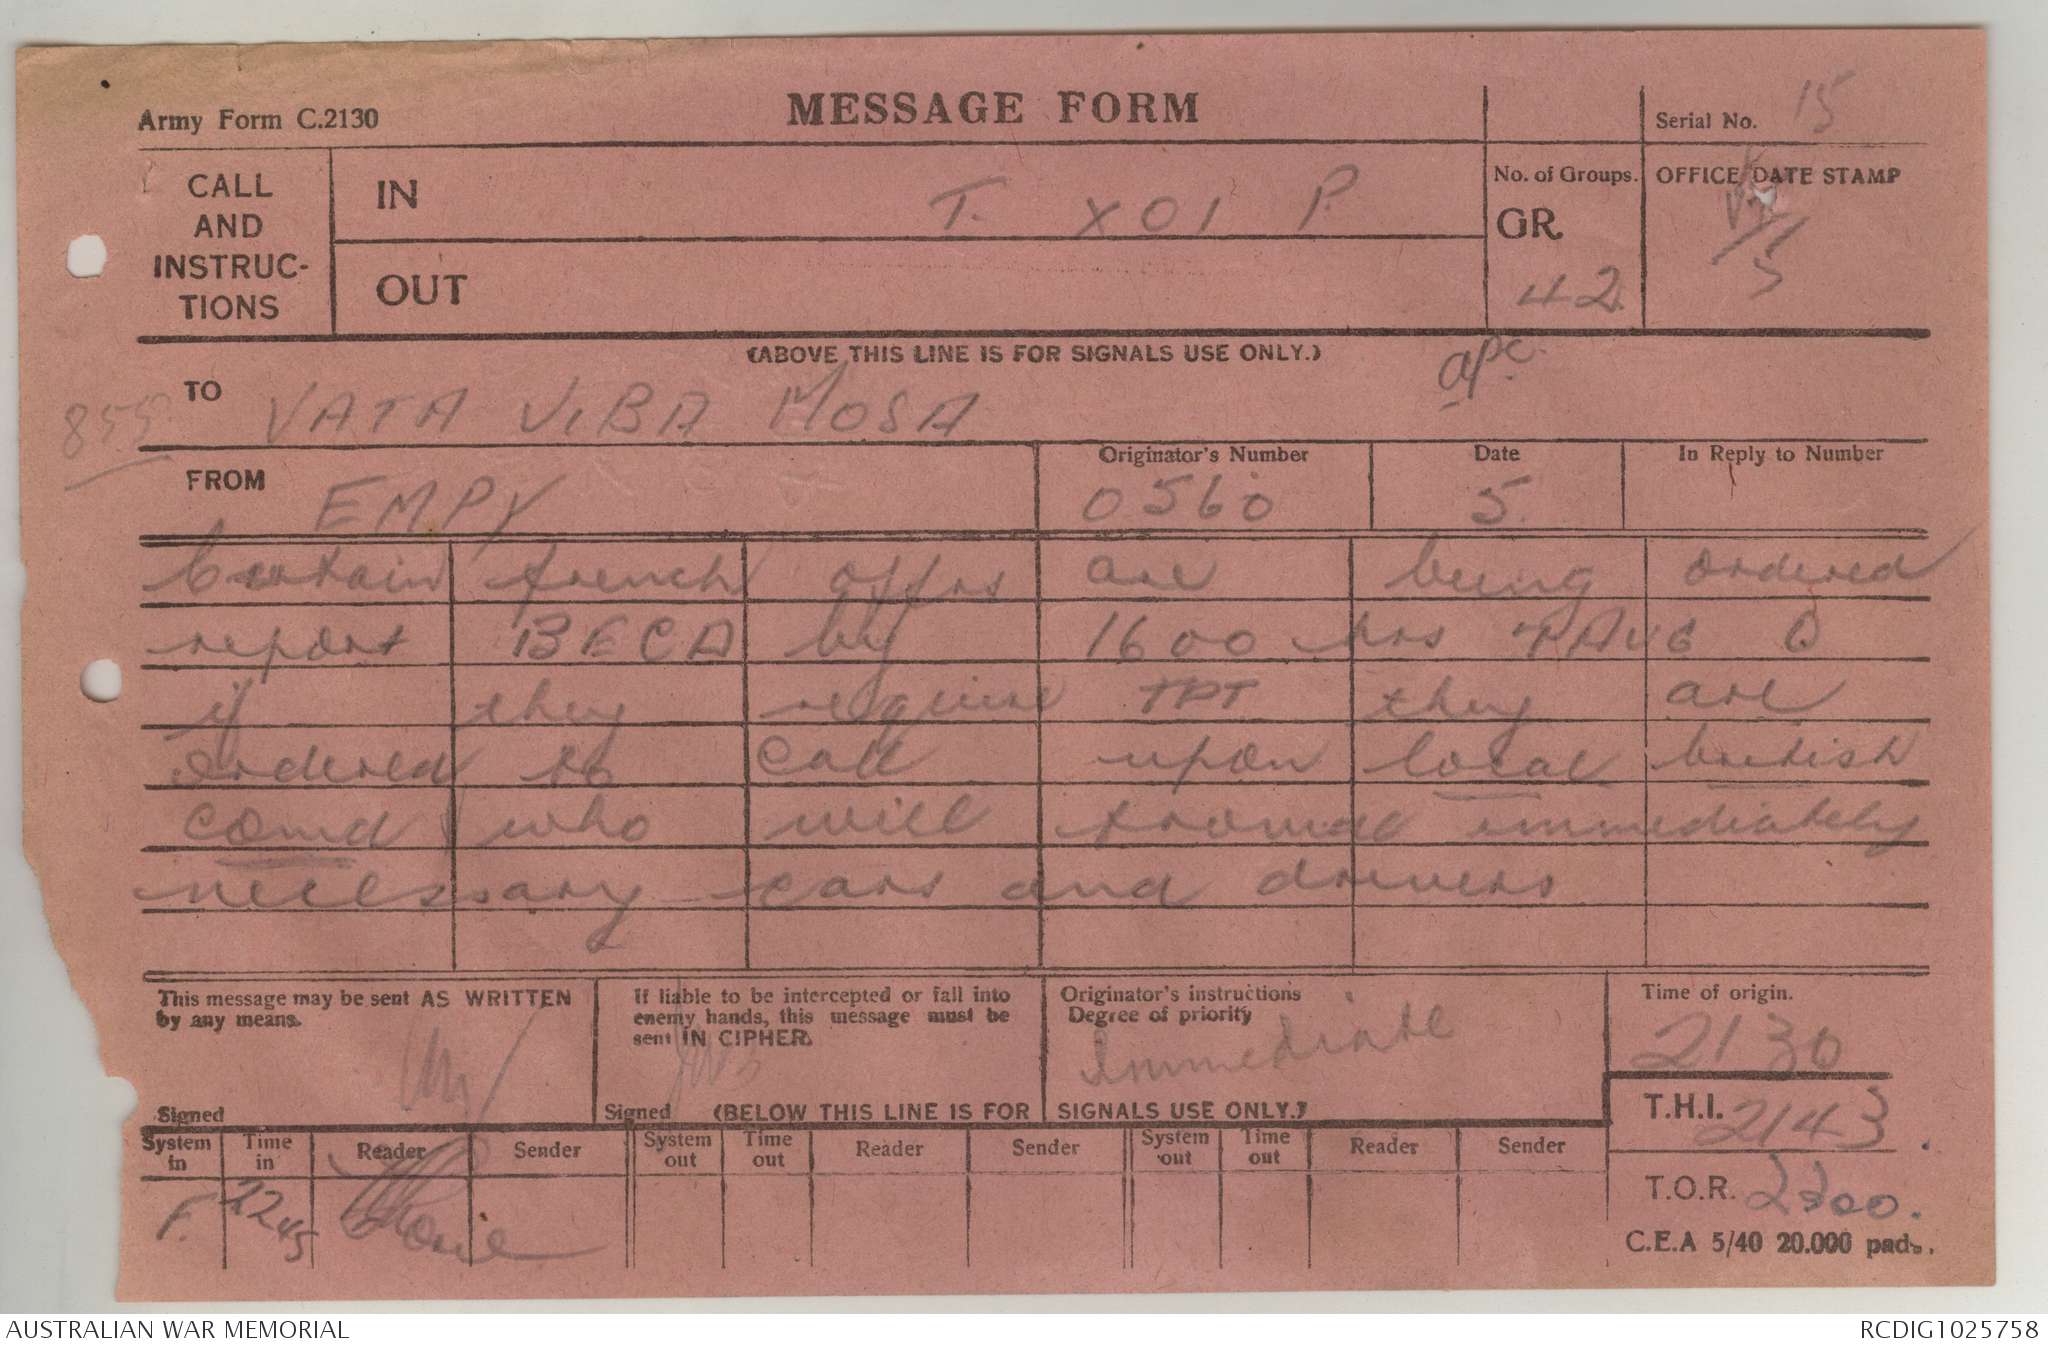 Army Form C.2130
MESSAGE FORM
Serial No. 15
CALL AND INSTRUC-TIONS
IN T. X01 P.
OUT
No. of Groups.
GR. 42
OFFICE DATE STAMP
(ABOVE THIS LINE IS FOR SIGNALS USE ONLY.)
855
TO VATA VIBA MOSA
FROM EMPY
Originator's Number 0560
Date 5.
In Reply to Number
Certain french offrs are being ordered
report BECA by 1600 hrs 7 AUG
if they require TPT they are
ordered to call upon local british
comd who will immediately
necessary cars and drivers
This message may be sent AS WRITTEN by any means.
Signed
If liable to be intercepted or fall into enemy hands, this message must be sent IN CIPHER.
Signed
Originator's instructions
Degree of priority
Immediate
Time of origin.
2130
T.H.I. 2143
T.O.R. 2200.
(BELOW THIS LINE IS FOR SIGNALS USE ONLY.)
System in Time in Reader Sender System out Time out Reader Sender System out Time out Reader Sender
F. 2245
C.E.A 5/40 20.000 pads.
AUSTRALIAN WAR MEMORIAL
RCDIG1025758